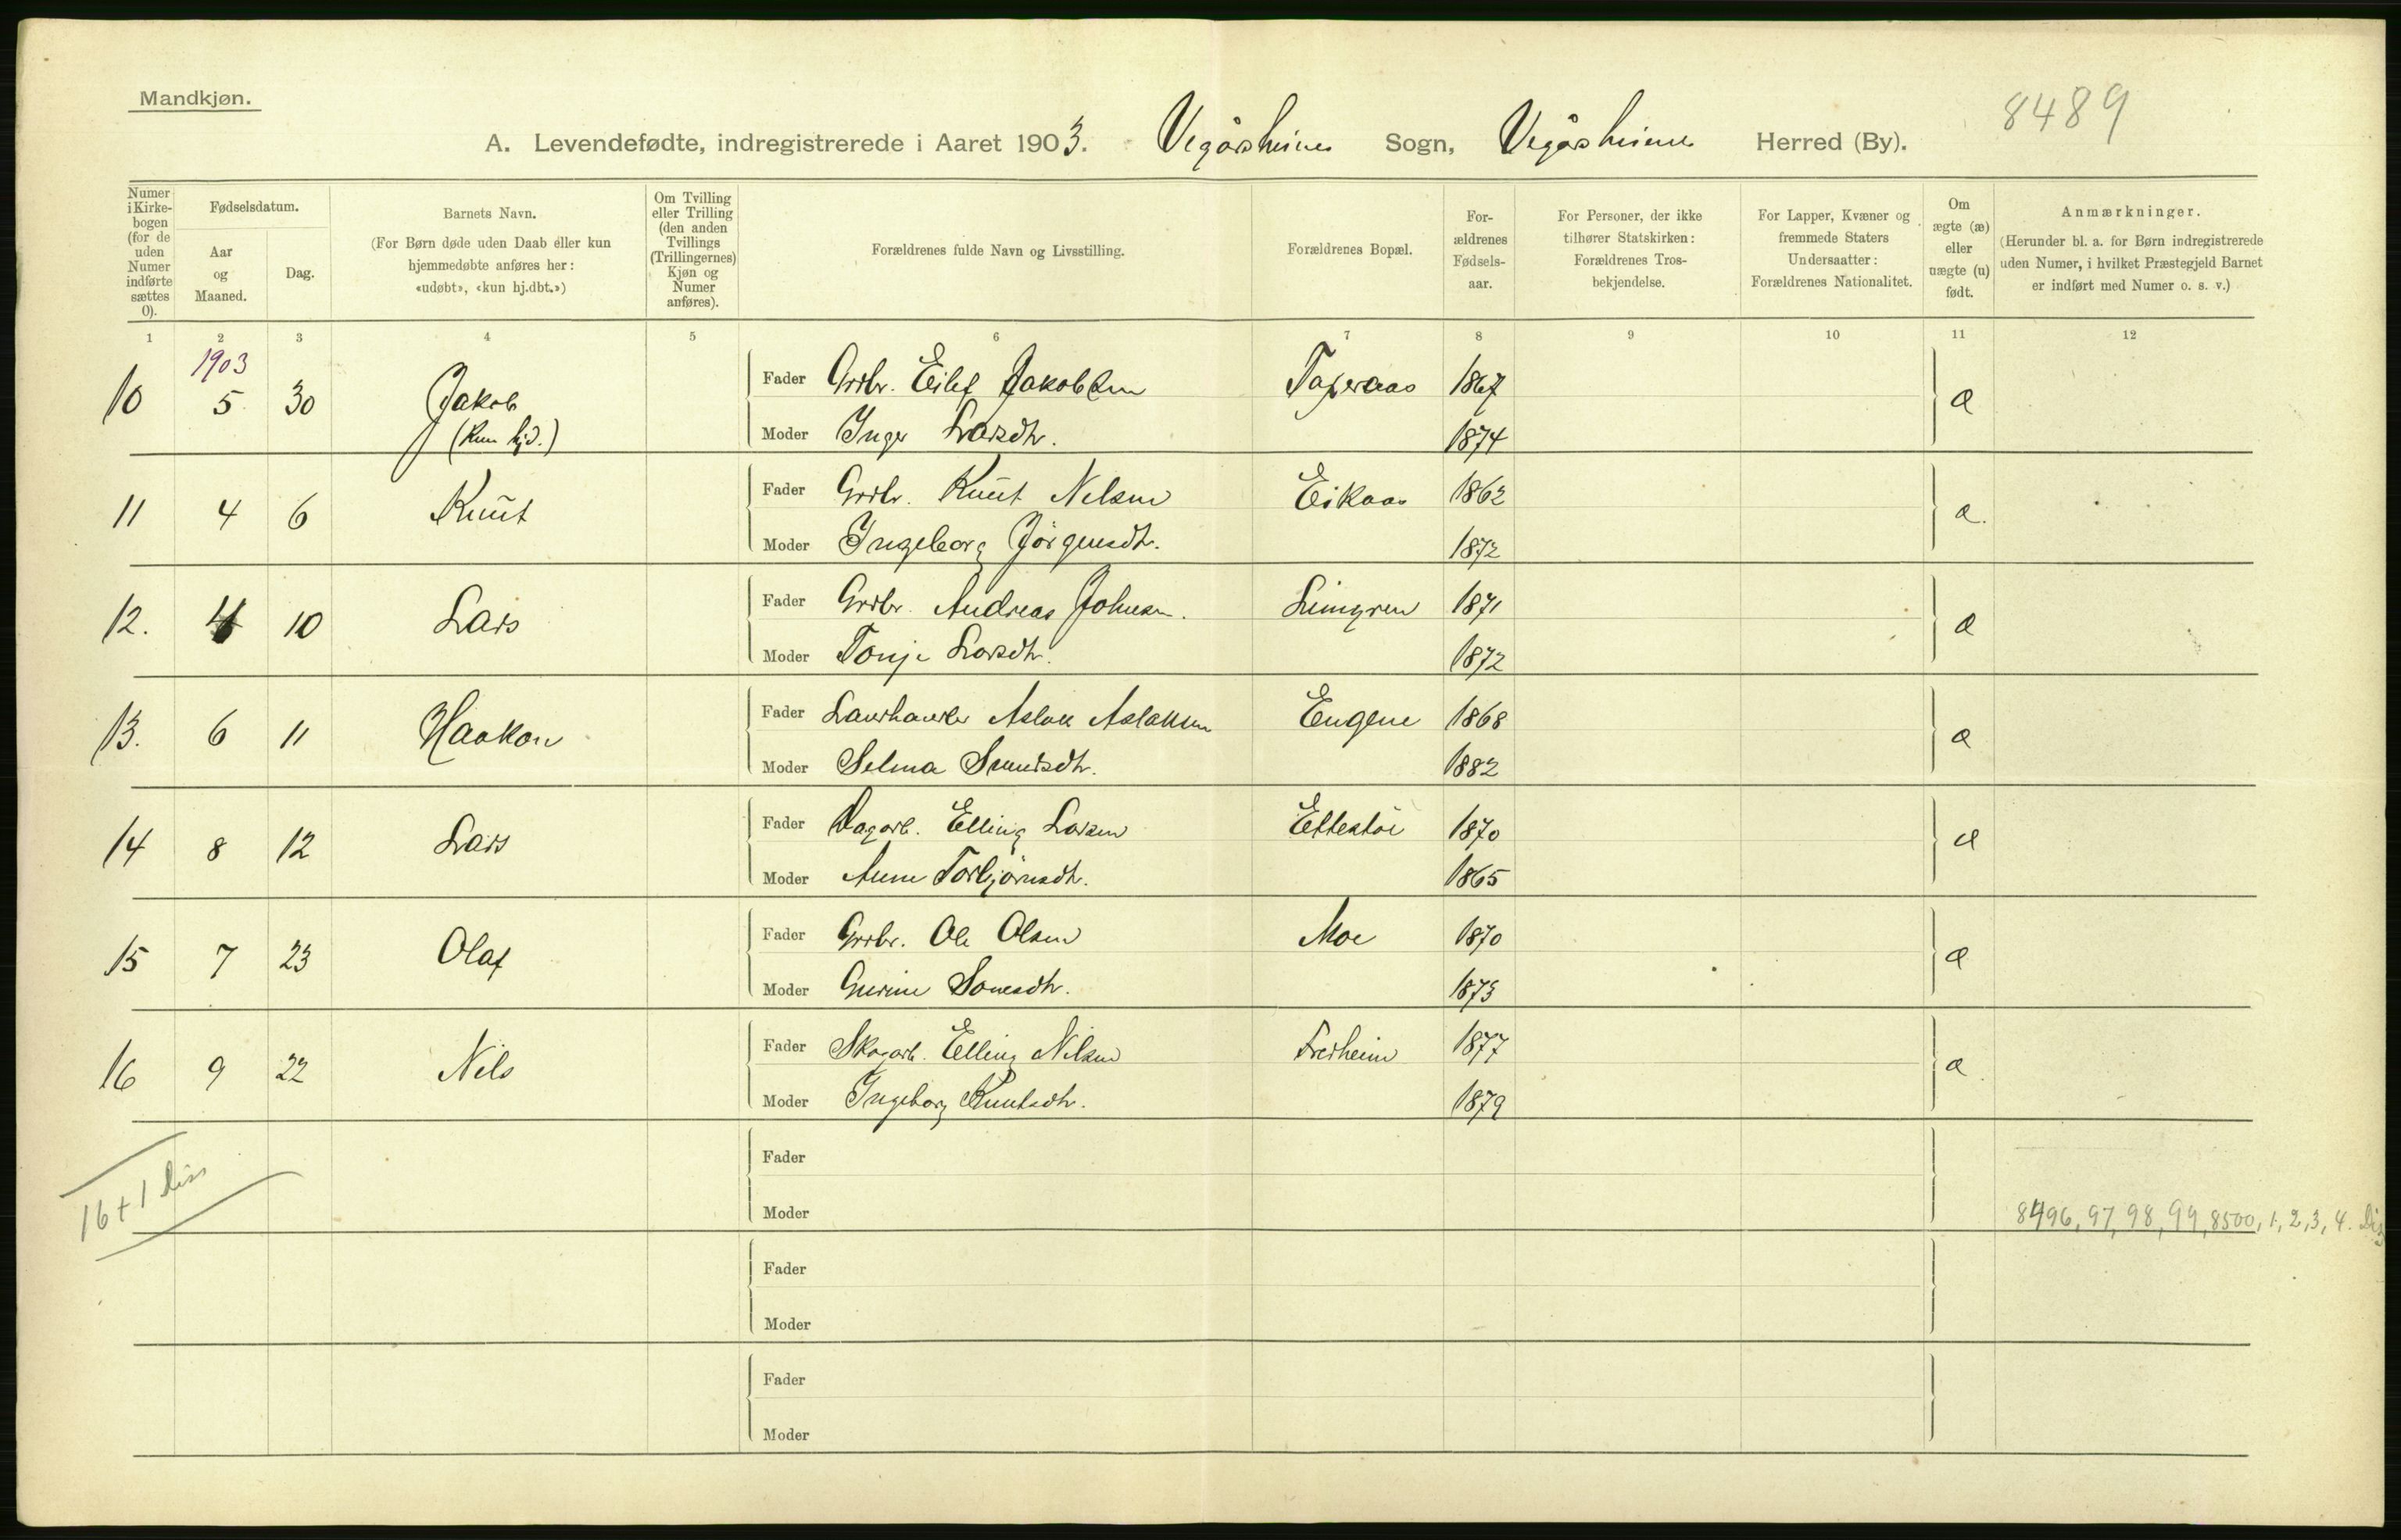 Mandkjøn.
8489
A. Levendefødte, indregistrerede i Aaret 1903. Vegårsheien Sogn, Vegårsheien Herred (By).
Numer i Kirkebogen (for de uden Numer indførte sættes 0).
Fødselsdatum.
Aar og Maaned.
Dag.
Barnets Navn.
(For Børn døde uden Daab eller kun hjemmedøbte anføres her: «udøbt», «kun hj.dbt.»)
Om Tvilling eller Trilling (den anden Tvillings (Trillingernes) Kjøn og Numer anføres).
Forældrenes fulde Navn og Livsstilling.
Forældrenes Bopæl.
Forældrenes Fødselsaar.
For Personer, der ikke tilhører Statskirken: Forældrenes Trosbekjendelse.
For Lapper, Kvæner og fremmede Staters Undersaatter: Forældrenes Nationalitet.
Om ægte (æ) eller uægte (u) født.
Anmærkninger.
(Herunder bl. a. for Børn indregistrerede uden Numer, i hvilket Præstegjeld Barnet er indført med Numer o. s. v.)
1 2 3 4 5 6 7 8 9 10 11 12
1903
10 5 30 Jakob Fader Grdbr. Eilef Jakobsen 1867 æ
(kun hjd.) Moder Inger Larsdtr. 1874
11 4 6 Knut Fader Grdbr. Knut Nilsen Eikaas 1862 æ.
Moder Ingeborg Jørgensdtr. 1872
12. 4 10 Lars Fader Grdbr. Andreas Johnsen. Limgren 1871 æ
Moder Tonje Larsdtr. 1872
13. 6 11 Haakon Fader Landhandler Aslak Aslaksen Engene 1868 æ
Moder Selma 1882
14 8 12 Lars Fader Dagarb. Elling Larsen Ettestøl 1870 æ
Moder Anne Torbjørnsdtr. 1865
15 7 23 Olaf Fader Grdbr. Ole Olsen Moe 1870 æ
Moder Gurine 1873
16 9 22 Nils Fader Skogarb. Elling Nilsen 1877 æ
Moder Ingeborg Knutsdtr. 1879
Fader
16 + 1 dis
Moder
8496, 97, 98, 99, 8500, 1, 2, 3, 4. Dis
Fader
Moder
Fader
Moder